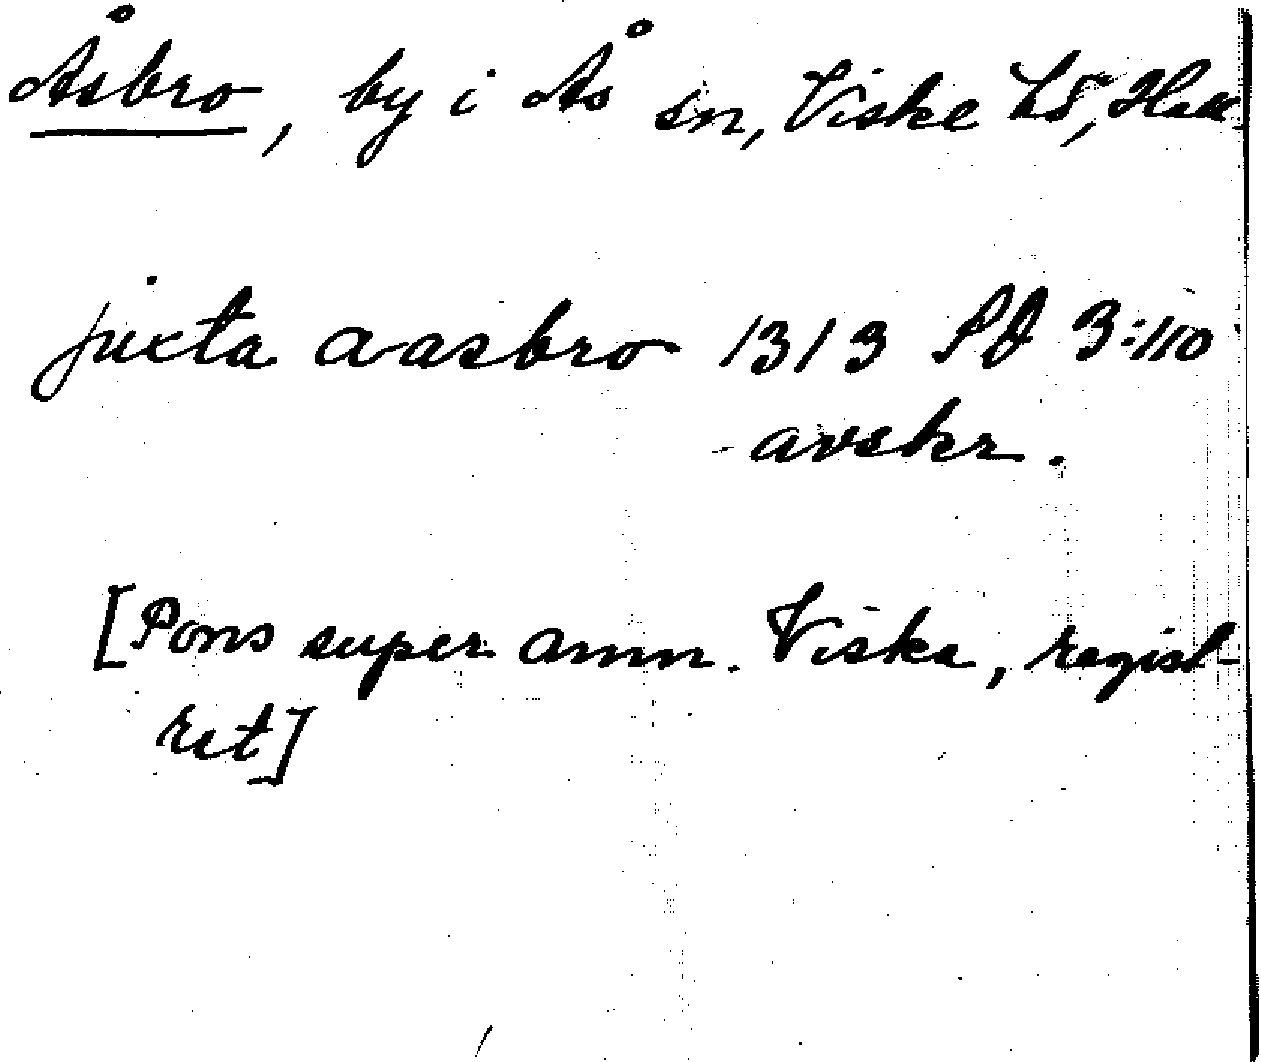 Åsbro, by i Ås sn, Viske hd, Hall
juxta aasbro 1313 SD 3:110
avskr.
[Pons super amn. Viska, regist-
ret]